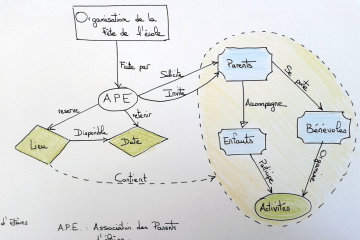 Organisation de la
fête de l'école
Faite par
APE
Sollicite
Invite
Parents
Se porte
Accompagne
reserve
retenir
Disponible
Lieu
Date
Enfants
Bénévoles
Participe
Organise
Contient
Activités
d'élèves
A.P.E. : Association des Parents